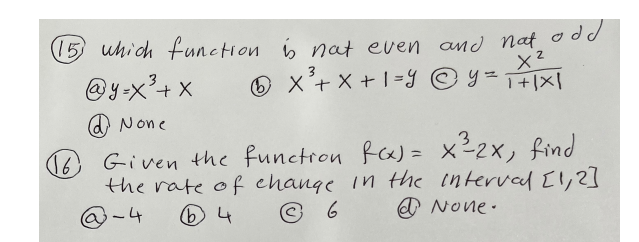 (15) which function is nat even and nat odd
(a) y=x³+x (b) x³+x+1=y (c) y= x²/1+|x|
(d) None
(16) Given the function f(x)= x³-2x, find
the rate of change in the interval [1,2]
(a) -4 (b) 4 (c) 6 (d) None.